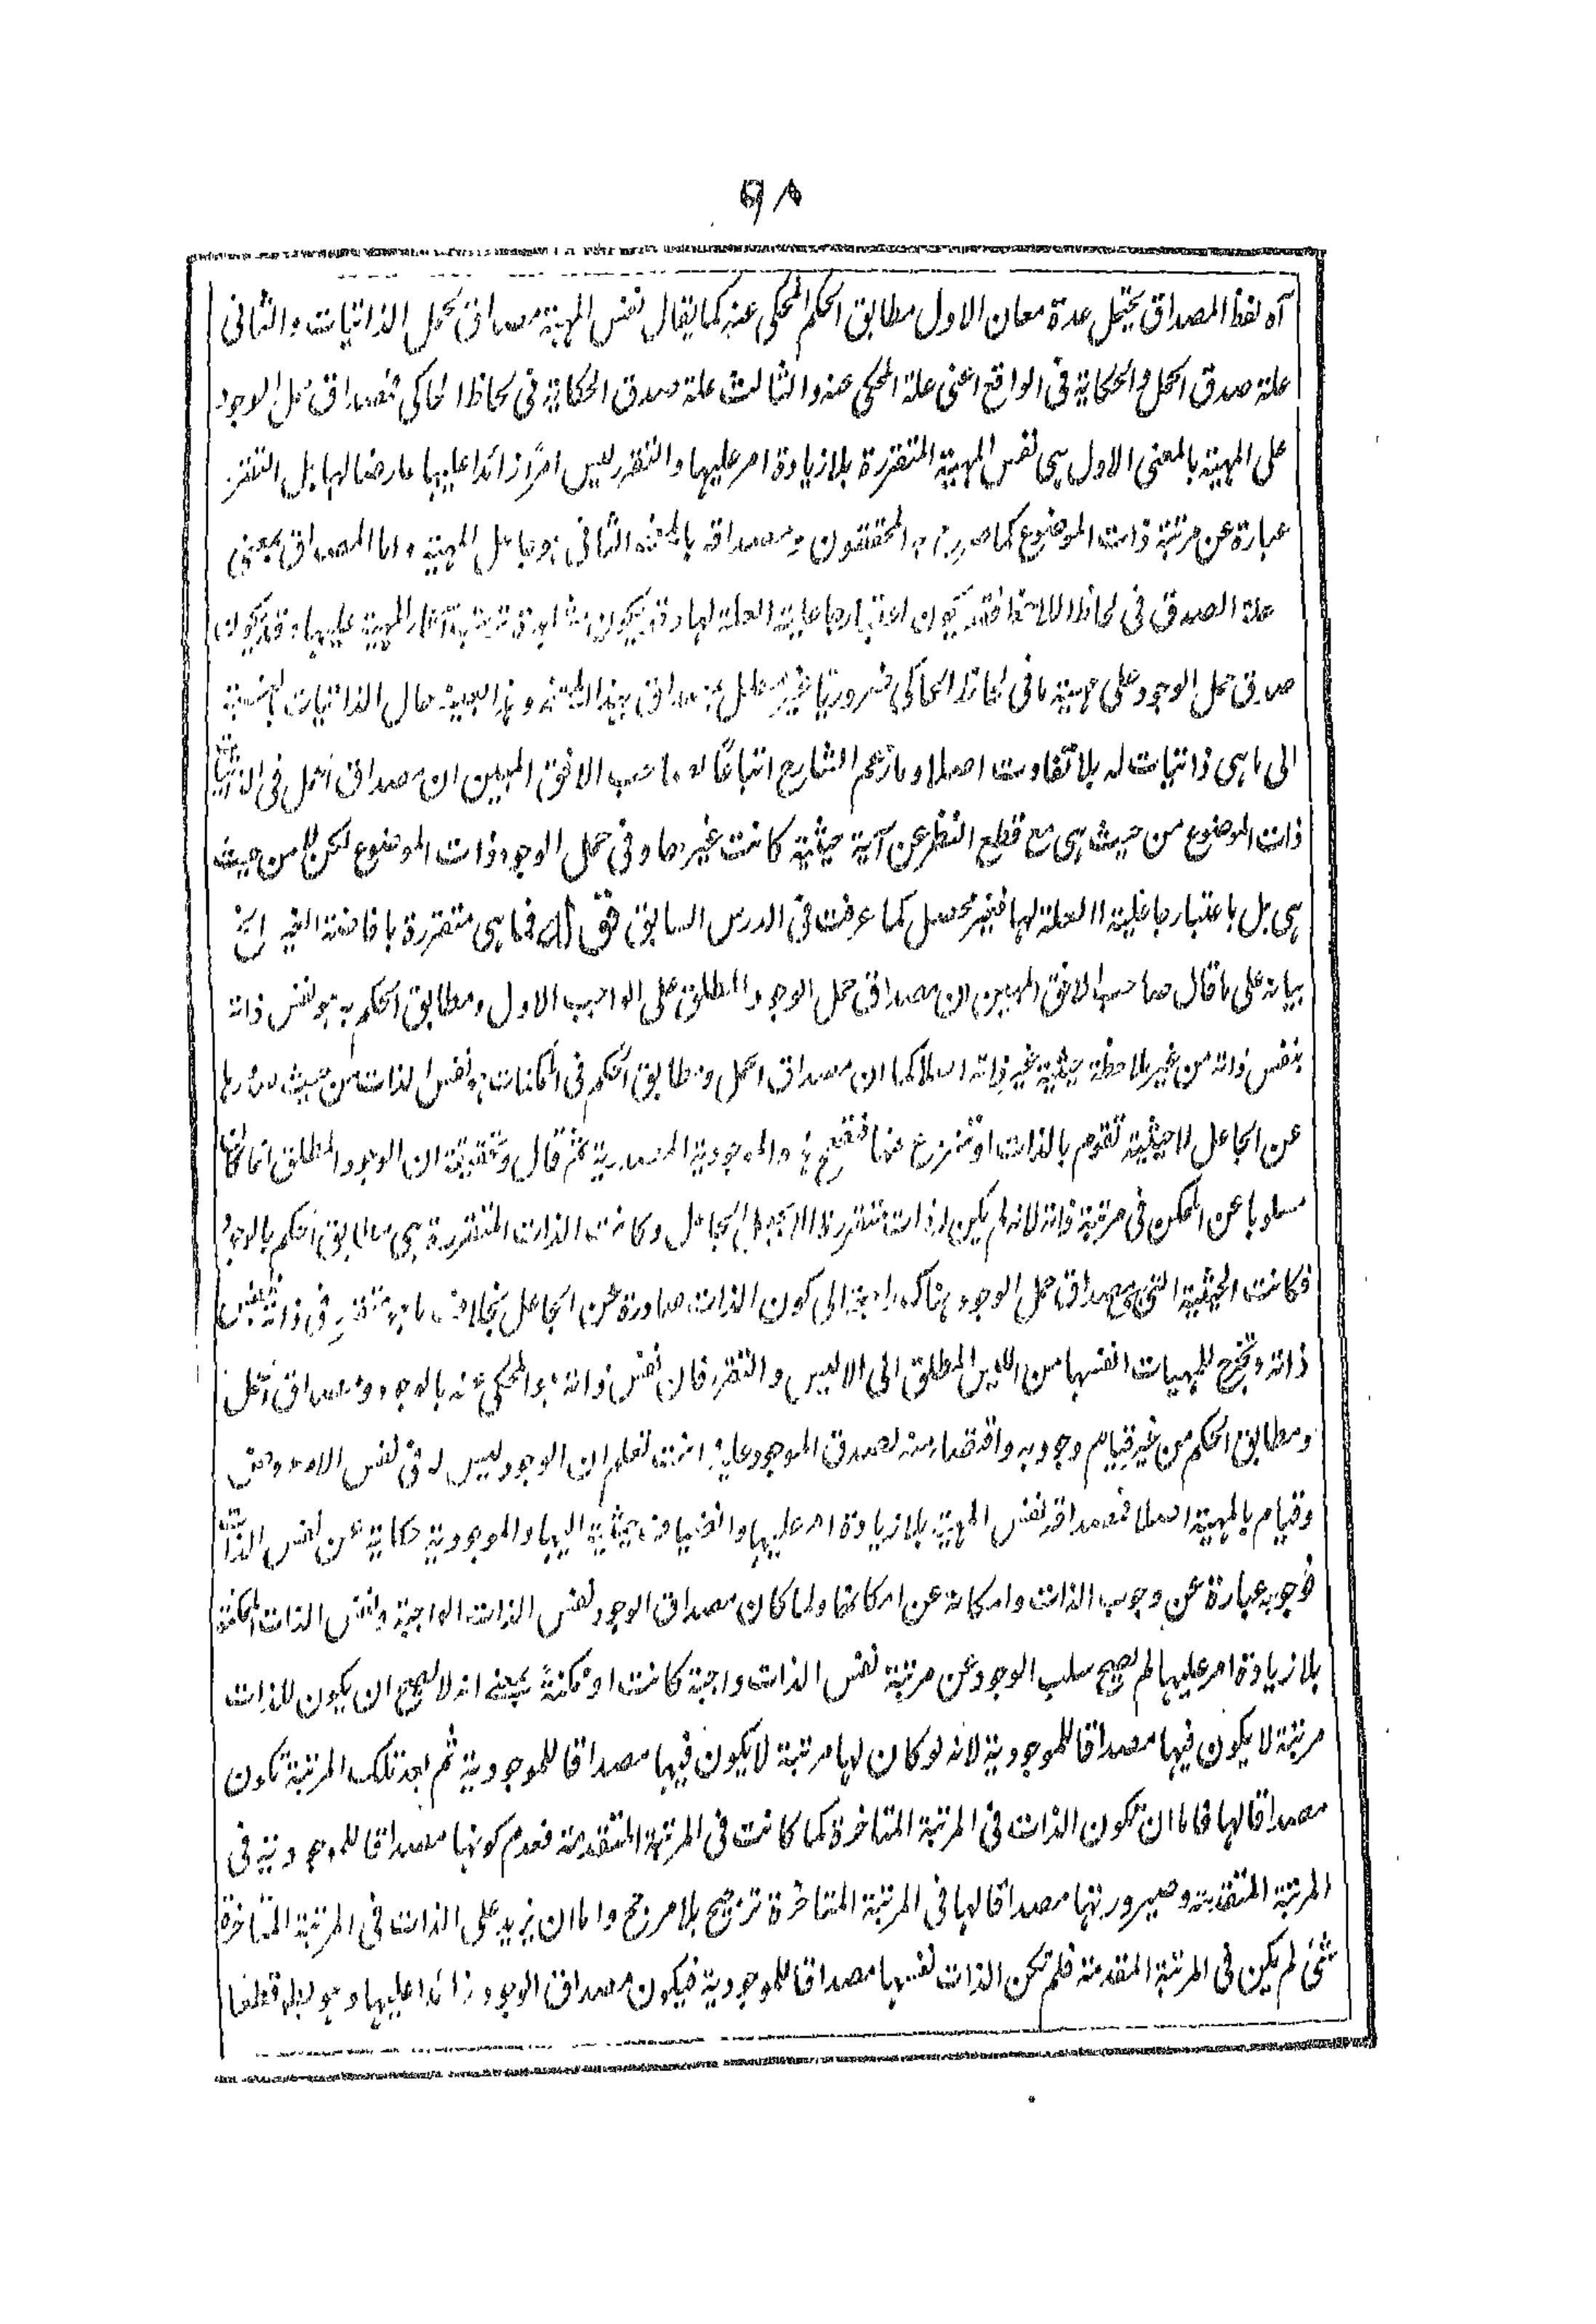 ٩٨
آه لفظ المصداق يحتمل عدة معان الاول مطابق الحكم المحكى عنه كما يقال نفس المهية مصداق لحمل الذاتيات والثانى
علة صدق الحمل والحكاية فى الواقع اعنى علة المحكى عنه والثالث علة صدق الحكاية فى لحاظ الحاكى فمصداق حمل الوجود
على المهية بالمعنى الاول هى نفس المهية المتقررة بلا زيادة امر عليها والتقرر ليس امرًا زائدا عليها عارضا لها بل التقرر
عبارة عن مرتبة ذات الموضوع كما صرح به المحققون ومصداقه بالمعنى الثانى هو جاعل المهية واما المصداق بمعنى
علة الصدق فى لحاظ فقد يكون اعتبار جاعلية العلة لها وقد يكون ترتب آثار المهية عليها وقد يكون
صدق حمل الوجود على مهية ما فى لحاظ الحاكى ضروريا غير معلل بمصداق بهذا المعنى وهذا بعينه حال الذاتيات بالنسبة
الى ما هى ذاتيات له بلا تفاوت اصلا وما زعم الشارح اتباعًا لصاحب الافق المبين ان مصداق الحمل فى الذاتيات
ذات الموضوع من حيث هى مع قطع النظر عن آية حيثية كانت غيرها وفى حمل الوجود ذات الموضوع لكن لا من حيث
هى بل باعتبار جاعلية العلة لها فغير محصل كما عرفت فى الدرس السابق فماهى متقررة بافاضة الغير
بيانه على ما قال صاحب الافق المبين ان مصداق حمل الوجود المطلق على الواجب الاول ومطابق الحكم به هو نفس ذاته
بنفس ذاته من غير ملاحظة حيثية غير ذاته اصلا كما ان مصداق الحمل ومطابق الحكم فى الممكنات هو نفس الذات من حيث صدورها
عن الجاعل لا حيثية تقوم بالذات او تنتزع عنها والموجودية المصدرية ثم قال وتحقيقه ان الوجود المطلق انما كان
مسلوبا عن الممكن فى مرتبة ذاته لانه لم يكن ذات متقررة الا بجعل الجاعل وكانت الذات المتقررة هى مطابق الحكم بالوجود
فكانت الحيثية التى هى مصداق حمل الوجود هناك راجعة الى كون الذات صادرة عن الجاعل بخلاف ما هو متقرر فى ذاته بنفس
ذاته ومخرج للمهيات انفسها من الليس المطلق الى الايس والتقرر فان نفس ذاته هو المحكى عنه بالوجود ومصداق الحمل
ومطابق الحكم من غير قيام وجود به واقتضاء منه لصدق الموجود عليه انت تعلم ان الوجود ليس له فى نفس الامر عروض
وقيام بالمهية اصلا فمصداقه نفس المهية بلا زيادة امر عليها وانضياف حيثية اليها والموجودية حكاية عن نفس الذات
فوجوبه عبارة عن وجوب الذات وامكانه عن امكانها ولما كان مصداق الوجود نفس الذات الواجبة ونفس الذات الممكنة
بلا زيادة امر عليها لم يصح سلب الوجود عن مرتبة نفس الذات واجبة كانت او ممكنةً بمعنى انه لا يصح ان يكون للذات
مرتبة لا يكون فيها مصداقا للموجودية لانه لو كان لها مرتبة لا يكون فيها مصداقا للموجودية ثم بعد تلك المرتبة تكون
مصداقا لها فاما ان تكون الذات فى المرتبة المتاخرة كما كانت فى المرتبة المتقدمة فعدم كونها مصداقا للموجودية فى
المرتبة المتقدمة وصيرورتها مصداقا لها فى المرتبة المتاخرة ترجيح بلا مرجح واما ان يزيد على الذات فى المرتبة المتاخرة
شئ لم يكن فى المرتبة المتقدمة فلم تكن الذات نفسها مصداقا للموجودية فيكون مصداق الوجود زائدا عليها وهو باطل قطعا